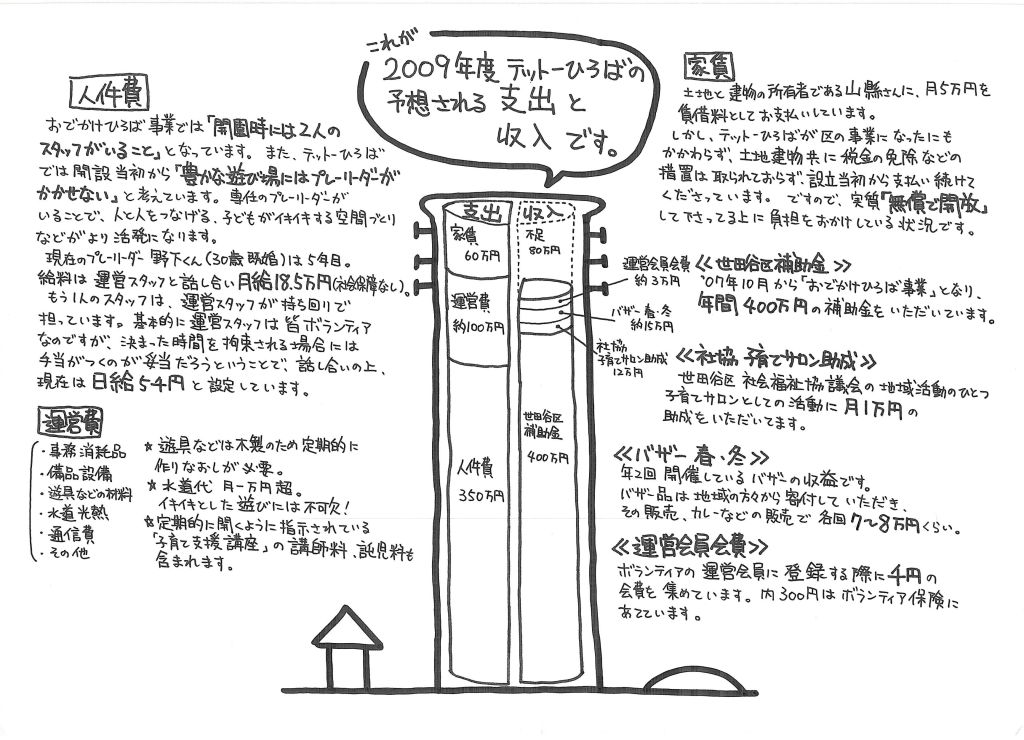 これが
2009年度 テットーひろばの
予想される 支出 と
収入 です。
人件費
おでかけひろば事業では「開園時には2人の
スタッフがいること」となっています。また、テットーひろば
では開設当初から「豊かな遊び場にはプレーリーダーが
かかせない」と考えています。専任のプレーリーダーが
いることで、人と人をつなげる、子どもがイキイキする空間づくり
などがより活発になります。
現在のプレーリーダー 野下くん(30歳既婚)は5年目。
給料は運営スタッフと話し合い月給18.5万円(社会保障なし)。
もう1人のスタッフは、運営スタッフが持ち回りで
担っています。基本的に運営スタッフは皆ボランティア
なのですが、決まった時間を拘束される場合には
手当がつくのが妥当だろうということで、話し合いの上、
現在は日給5千円と設定しています。
運営費
・事務消耗品
・備品設備
・遊具などの材料
・水道光熱
・通信費
・その他
★遊具などは木製のため定期的に
作りなおしが必要。
★水道代 月一万円超。
イキイキとした遊びには不可欠!
★定期的に開くように指示されている
「子育て支援講座」の講師料、託児料も
含まれます。
支出
家賃
60万円
運営費
約100万円
人件費
350万円
収入
不足
80万円
運営会員会費
約3万円
バザー春・冬
約15万円
社協
子育てサロン助成
12万円
世田谷区
補助金
400万円
家賃
土地と建物の所有者である山縣さんに、月5万円を
賃借料としてお支払いしています。
しかし、テットーひろばが区の事業になったにも
かかわらず、土地建物共に税金の免除などの
措置は取られておらず、設立当初から支払い続けて
くださっています。ですので、実質「無償で開放」
して下さってる上に負担をおかけしている状況です。
≪世田谷区補助金≫
'07年10月から「おでかけひろば事業」となり、
年間400万円の補助金をいただいています。
≪社協 子育てサロン助成≫
世田谷区 社会福祉協議会の地域活動のひとつ
子育てサロンとしての活動に月1万円の
助成をいただいてます。
≪バザー 春・冬≫
年2回開催しているバザーの収益です。
バザー品は地域の方々から寄付していただき、
その販売、カレーなどの販売で各回7〜8万円くらい。
≪運営会員会費≫
ボランティアの運営会員に登録する際に千円の
会費を集めています。内300円はボランティア保険に
あてています。